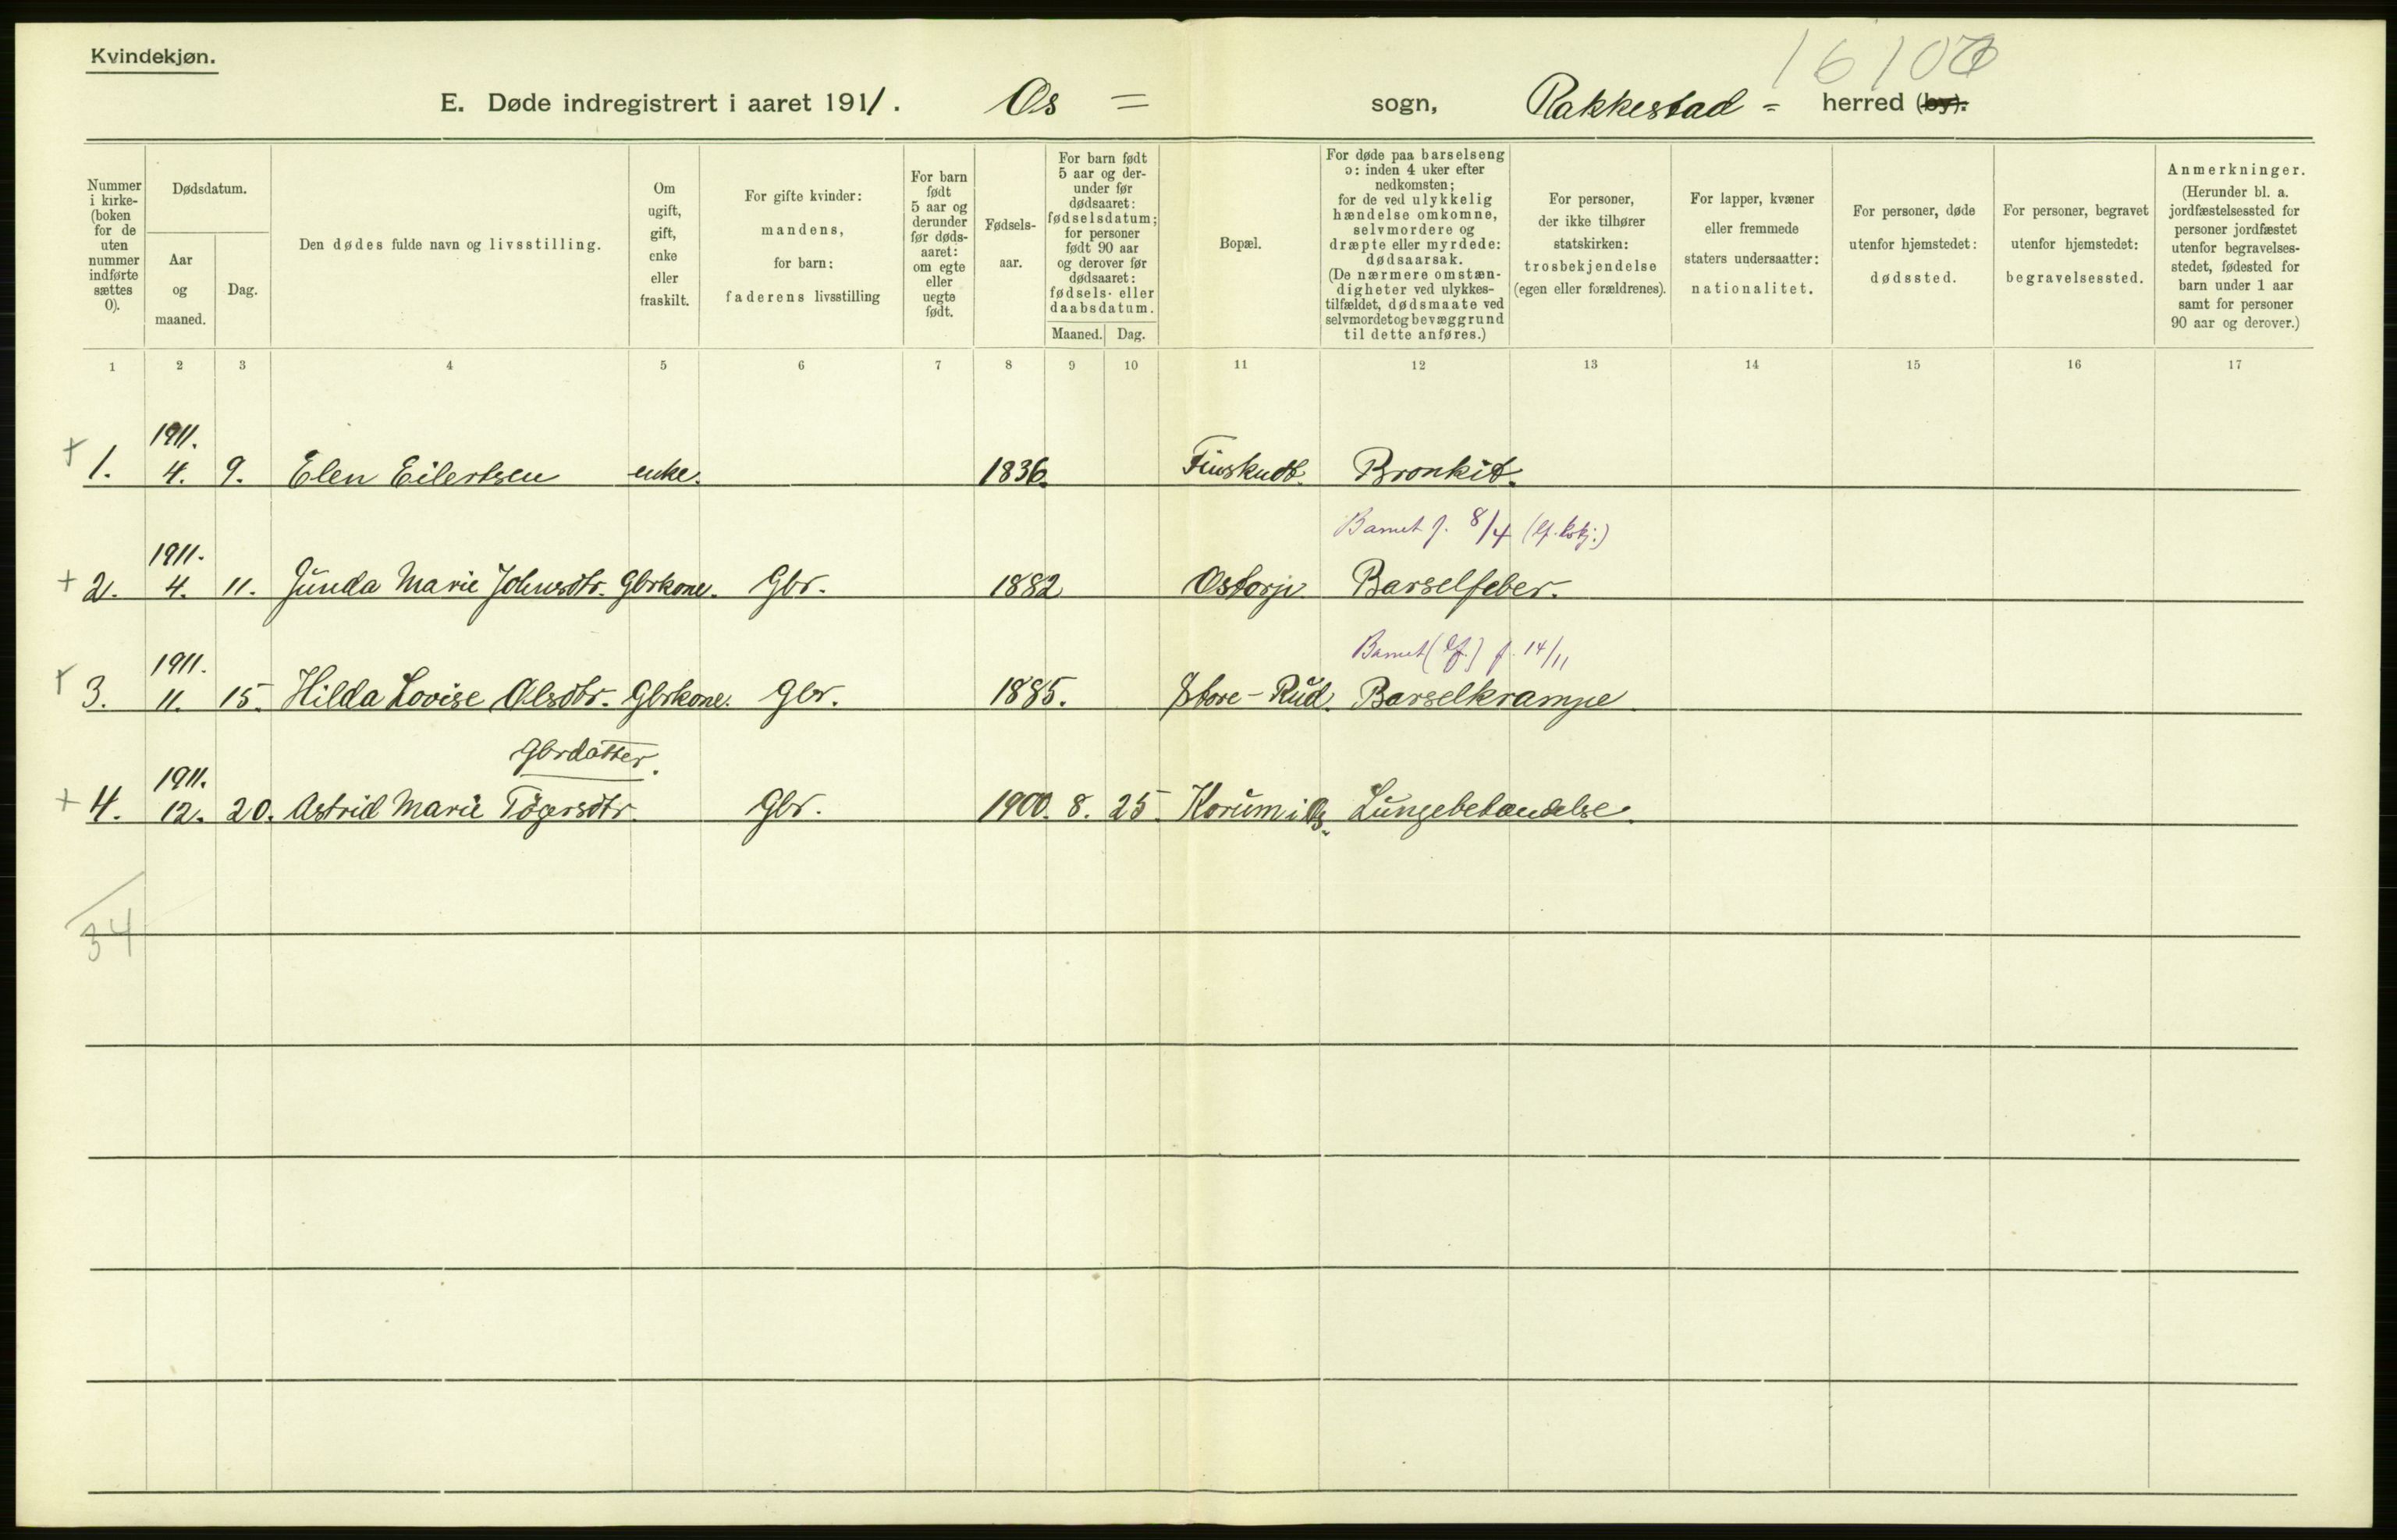 Kvindekjøn.
16106
E. Døde indregistrert i aaret 1911. Os = sogn, Rakkestad = herred (by).
Nummer i kirke-(boken for de uten nummer indførte sættes 0).
Dødsdatum.
Aar og maaned.
Dag.
Den dødes fulde navn og livsstilling.
Om ugift, gift, enke eller fraskilt.
For gifte kvinder: mandens, for barn: faderens livsstilling
For barn født 5 aar og derunder før døds-aaret: om egte eller uegte født.
Fødsels-aar.
For barn født 5 aar og der-under før dødsaaret: fødselsdatum; for personer født 90 aar og derover før dødsaaret: fødsels- eller daabsdatum.
Maaned. Dag.
Bopæl.
For døde paa barselseng ɔ: inden 4 uker efter nedkomsten; for de ved ulykkelig hændelse omkomne, selvmordere og dræpte eller myrdede: dødsaarsak. (De nærmere omstæn-digheter ved ulykkes-tilfældet, dødsmaate ved selvmordet og bevæggrund til dette anføres.)
For personer, der ikke tilhører statskirken: trosbekjendelse (egen eller forældrenes).
For lapper, kvæner eller fremmede staters undersaatter: nationalitet.
For personer, døde utenfor hjemstedet: dødssted.
For personer, begravet utenfor hjemstedet: begravelsessted.
Anmerkninger. (Herunder bl. a. jordfæstelsessted for personer jordfæstet utenfor begravelses-stedet, fødested for barn under 1 aar samt for personer 90 aar og derover.)
1 2 3 4 5 6 7 8 9 10 11 12 13 14 15 16 17
1911.
+ 1. 4. 9. Elen Eilertsen enke. 1836. Finskudt. Bronkit.
Barnet f. 8/4
1911.
+ 2. 4. 11. Junda Marie Johnsdtr. Gbrkone. Gbr. 1882 Ostorp Barselfeber.
Barnet f. 14/11
1911.
+ 3. 11. 15. Hilda Lovise Olsdtr. Gbrkone. Gbr. 1885. Store-Rud. Barselkrampe
Gbrdatter.
1911.
+ 4. 12. 20. Astrid Marie Tögersdtr. Gbr. 1900. 8. 25. Korum i Os. Lungebetændelse.
34